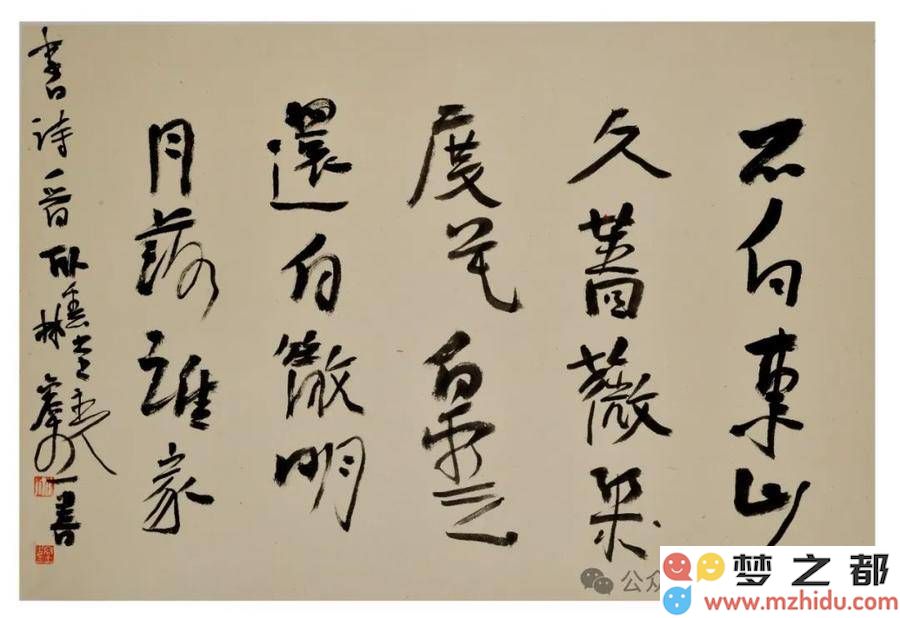 不向東山
久薔薇幾
度花白雲
還自散明
月落誰家
書詩一首 臥 林
公众
梦之都
www.mzhidu.com